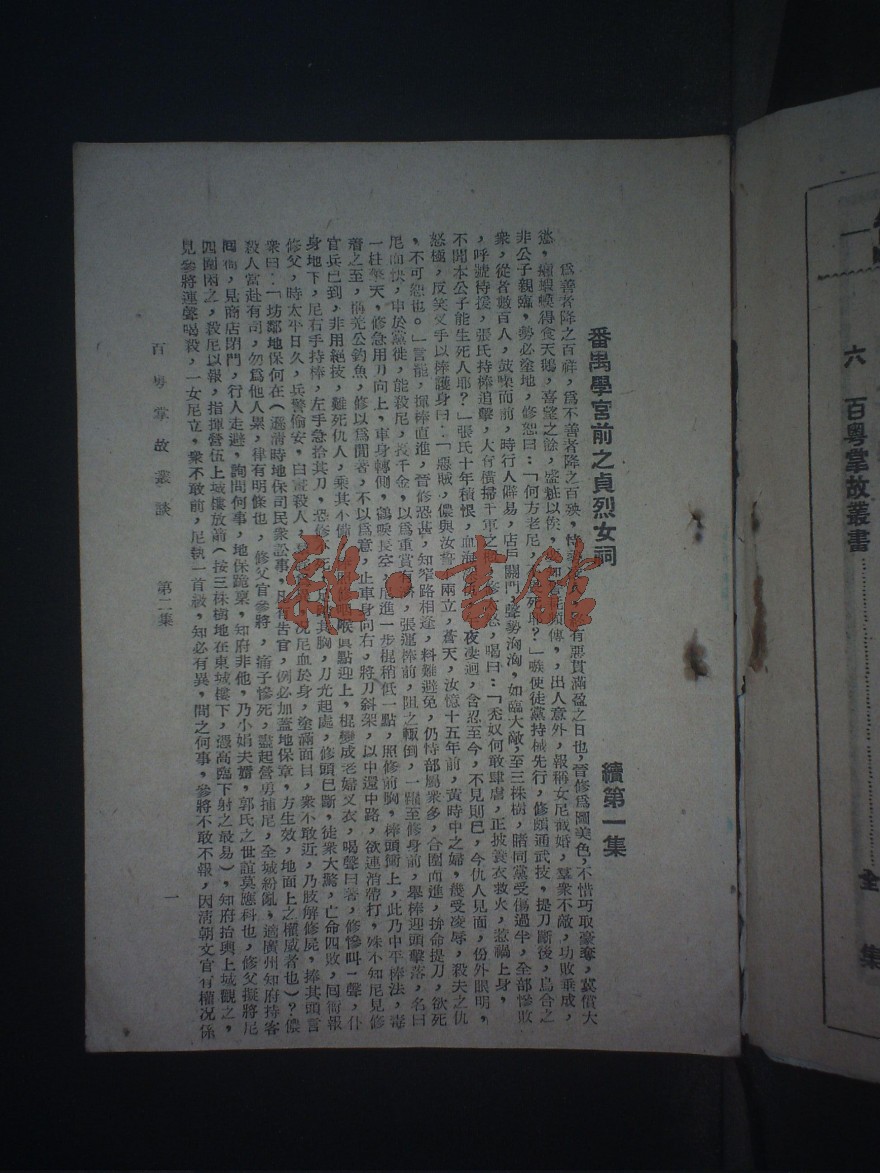 番禺學宮前之貞烈女祠
續第一集
為善者降之百祥，為不善者降之百殃，有惡貫滿盈之日也，晉修為圖美色，不惜巧取豪奪，冀償大
慾，癩蝦蟆得食天鵝，喜望之餘，盛粧以俟，傳，出人意外，報稱女尼截婚，羣衆不敵，功敗垂成，
非公子親臨，勢必塗地，修恕曰：「何方老尼，死耶？」嗾使徒黨持械先行，修頗通武技，提刀斷後，烏合之
衆，從者數百人，鼓噪而前，時行人辟易，店戶關門，聲勢洶洶，如臨大敵，至三株樹，睹同黨受傷過半，全部慘敗
，呼號待援，張氏持棒追擊，大有橫掃千軍之，喝曰：「禿奴何敢肆虐，正披蓑衣救火，惹禍上身，
不聞本公子能生死人耶？」張氏十年積恨，血海夜淒迴，含忍至今，不見則已，今仇人見面，份外眼明，
怒極，反笑叉手以棒護身曰：「惡賊，儂與汝誓兩立，蒼天，汝憶十五年前，黃時中之婦，幾受凌辱，殺夫之仇
，不可恕也。」言罷，揮棒直進，晉修恐甚，知窄路相逢，料難避免，仍恃部屬衆多，合圍而進，拚命提刀，欲死
尼而快，申於黨徙，能殺尼，長千金，以為重賞，張運棒前，阻之輒倒，一躍至修身前，舉棒迎頭擊落，名曰
一柱擎天，修急用刀向上，車身轉側，進一步棍稍低一點，照修前胸，棒頭衝上，此乃中平棒法，毒
之至，稱羌公釣魚，修以為閒著，不以為意，止車身向右，將刀斜架，以中還中路，欲連消帶打，殊不知尼見修
官兵已到，非用絕技，難死仇人，乘其小喉眞點迎上，棍變成老婦叉衣，喝聲曰著，修慘叫一聲，仆
身地下，尼右手持棒，左手急拾其刀，恐修其胸，刀光起處，修頭已斷，徒衆大驚，亡命四散，囘衙報
修父，時太平日久，兵警偷安，白晝殺人，况尼血於身，塗滿面目，衆不敢近，乃肢解修屍，捧其頭言
衆曰：「坊鄰地保何在（遜淸時地保司民衆訟事，告官，例必加蓋地保章，方生效，地面上之權威者也）？儂
殺人當赴有司，勿爲他人累，律有明條也，修父官參將，痛子慘死，盡起營勇捕尼，全城紛亂，適廣州知府持客
囘衙，見商店閉門，行人走避，詢問何事，地保跪稟，知府非他，乃小娟夫壻，郭氏之世誼莫應科也，修父擬將尼
四圍困之，殺尼以報，指揮營伍上城樓放箭（按三株樹地在東城樓下，憑高臨下射之最易），知府抬輿上城觀之，
見參將連聲喝殺，一女尼立，衆不敢前，尼執一首級，知必有異，問之何事，參將不敢不報，因清朝文官有權况係
百粤掌故叢談　第二集
一
六　百粤掌故叢書
全集
雜·書館